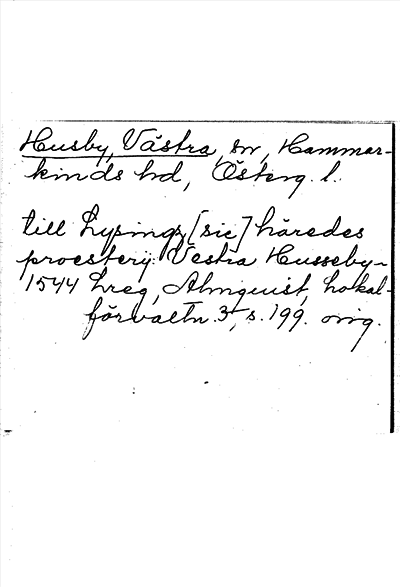 Husby, Västra, sn, Hammar-
kinds hd, Österg. l.
till Lysingz [sic] häredes
proestery: Vestra Husseby -
1544 Lreg, Almquist, Lokal-
förvaltn. 3, s. 199. orig.